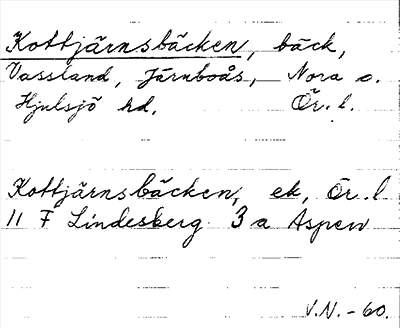 Kottjärnsbäcken, bäck,
Vassland, Järnboås, Nora o.
Hjulsjö hd. Ör. l.
Kottjärnsbäcken, ek, Ör. l
11 F Lindesberg 3 a Aspen
V.N. - 60.